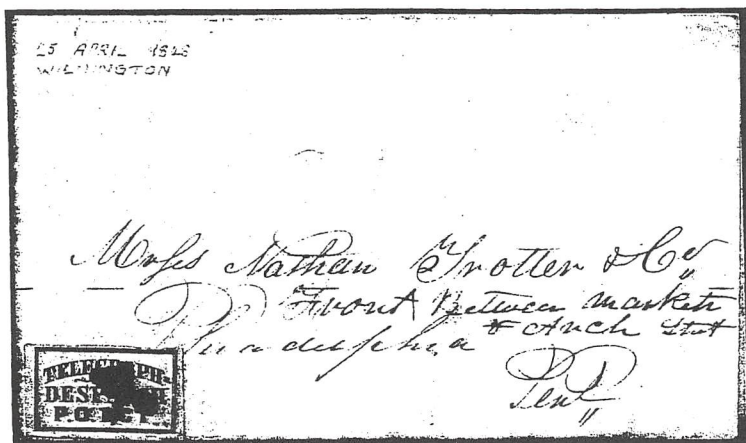 25 APRIL 1828
WILMINGTON
Messs Nathan Trotter & Co
Front Between Market
& Arch Stret
Philadelphia
Pena
TELEGRAPH
DESPATCH
P.O.